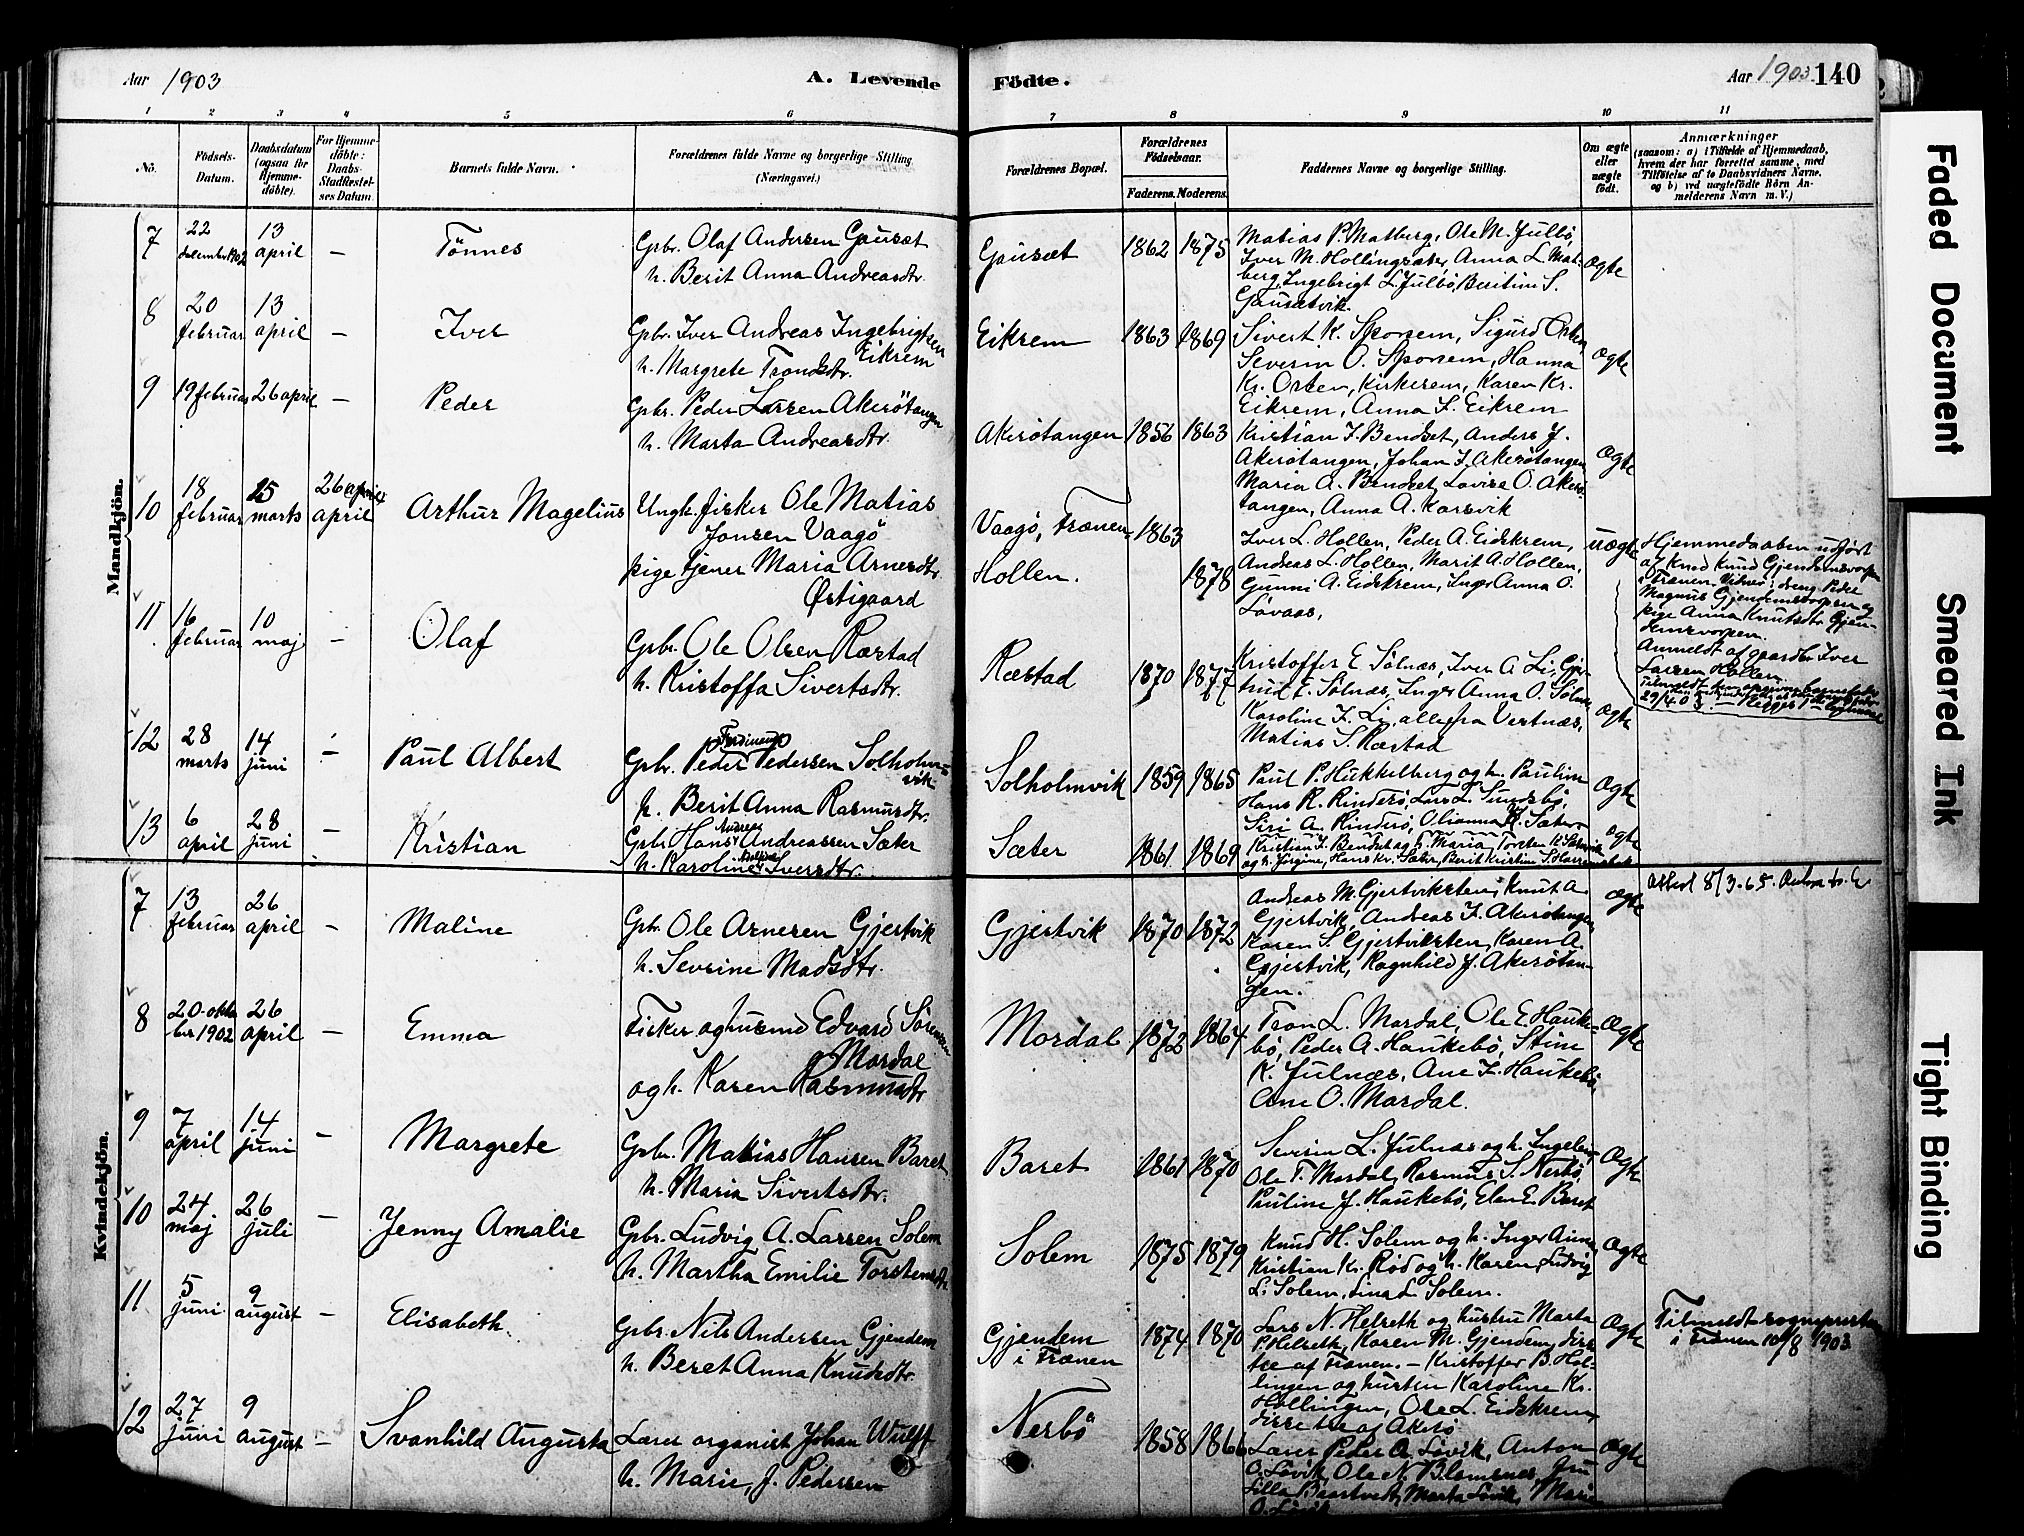 Aar 1903
A. Levende
Födte.
Aar 1903 140
1 2 3 4 5 6 7 8 9 10 11
No.
Födsels-
Datum.
Daabsdatum
(ogsaa for
Hjemme-
döbte).
For Hjemme-
döbte:
Daabs-
Stadfæstel-
ses Datum.
Barnets fulde Navn.
Forældrenes fulde Navne og borgerlige Stilling
(Næringsvei.)
Forældrenes Bopæl.
Forældrenes
Födselsaar.
Faderens. Moderens.
Faddernes Navne og borgerlige Stilling.
Om ægte
eller
uægte
født.
Anmærkninger
(saasom: a) i Tilfælde af Hjemmedaab,
hvem der har forrettet samme, med
Tilföielse af to Daabsvidners Navne,
og b) ved uægtefödte Börn An-
melderens Navn m. V.)
Mandkjön.
7
22
december 1902
13
april
—
Tönnes
Gpbr. Olaf Andersen Gausæt
h. Berit Anna Andreasdtr.
Gausæt
1862 1875
Matias P. Malberg, Ole M. Julbö,
Iver M. Hollingsæter, Anna L. Mal-
berg, Ingebrigt L. Julbö, Beritine S.
Gausætvik.
ægte
8
20
februar
13
april
—
Iver
Gpbr. Iver Andreas Ingebrigtsen
Eikrem
h. Margrete Trondsdtr.
Eikrem
1863 1869
Sivert K. Sporsem, Sigurd Osten,
Severin O. Sporsem, Hanna
Kr. Osten, Kirkerem, Karen Kr.
Eikrem, Anna I. Eikrem
ægte
9
19 februar
26 april
—
Peder
Gpbr. Peder Larsen Akerötangen
h. Marta Andreasdtr.
Akerötangen
1856 1863
Kristian I. Bendset, Anders J.
Akerötangen, Johan I. Akerötangen,
Maria A. Bendset, Lovise O. Akerö-
tangen, Anna A. Karsvik
ægte
10
18
februar
15
marts
26 april
april
Arthur Magelius
Ungk. fisker Ole Matias
Jonsen Vaagö
pige tjener Maria Arnesdtr.
Østigaard
Vaagö, Frænen
Hollen.
1863
1878
Iver L. Hollen, Peder A. Eidskrem,
Andreas L. Hollen, Marit A. Hollen,
Gunni A. Eidskrem, Inger Anna O.
Lövaas,
uægte
Hjemmedaaben udfört
af Knud Knud Gjendemsvorpen
i Frænen. Vitner: dreng Peder
Magnus Gjendemsvorpen og
pige Anna Knutsdtr Gjen-
demsvorpen.
Anmeldt af gaardbr Iver
Larsen Hollen.
29/4 03.
11
16
februar
10
maj
—
Olaf
Gpbr. Ole Olsen Ræstad
h. Kristoffa Sivertsdtr.
Ræstad
1870 1877
Kristoffer E. Sölnæs, Iver A. Li, Gjer-
trud E. Sölnæs, Inger Anna O. Sölnæs
Karoline I. Li, alle fra Vestnæs,
Matias S. Ræstad
ægte
12
28
marts
14
juni
—
Paul Albert
Ferdinand
Gpbr. Peder Pedersen Solholm-
vik
h. Berit Anna Rasmusdtr.
Solholmvik
1859 1865
Paul P. Hukkelberg og h. Pauline
Hans R. Rinderö, Lars L. Sundsbö,
Siri A. Rinderö, Olianna K. Sæter
ægte
13
6
april
28
juni
—
Kristian
Andreas
Gpbr Hans Andreassen Sæter
h. Karoline Iversdtr.
Sæter
1861 1869
Kristian I. Bendset og h. Maria, Torsten K.
og h. Jörgine, Hans Kr. Sæter, Berit Kristine S.
ægte
Kvindekjön.
7
13
februar
26
april
—
Maline
Gpbr. Ole Arnesen Gjertvik
h. Severine Madsdtr.
Gjertvik
1870 1872
Andreas M. Gjertviksten, Knut A.
Gjertvik, Andreas I. Akerötangen
Karen S. Gjertviksten, Karen A.
Gjertvik, Ragnhild J. Akerötan-
gen.
ægte
Attest 8/3-65.
8
20 okto
ber 1902
26
april
—
Emma
Fisker og husmd Edvard Sörensen
Mordal
og h. Karen Rasmusdtr
Mordal
1872 1864
Tron L. Mordal, Ole E. Hauke-
bö, Peder A. Haukebö, Stine
K. Julnæs, Ane I. Haukebö,
Ane O. Mordal.
ægte
9
7
april
14
juni
—
Margrete
Gpbr. Matias Hansen Baret
h. Maria Sivertsdtr.
Baret
1861 1870
Severin L. Julnæs og h. Ingeborg
Ole T. Mordal, Rasmus S. Nerbö,
Pauline J. Haukebö, Elen E. Baret
ægte
10
24
maj
26
juli
—
Jenny Amalie
Gpbr. Ludvig A. Larsen Solem
h. Martha Emilie Torstensdtr.
Solem
1875 1879
Knud H. Solem og h. Inger Anna
Kristian Kr. Röd og h. Karen, Ludvig
L. Solem, Lina L. Solem.
ægte
11
5
juni
9
august
—
Elisabeth.
Gpbr. Nils Andersen Gjendem
h. Beret Anna Knudsdtr.
Gjendem
i Frænen
1874 1870
Lars N. Helseth og hustru Marta
P. Helseth, Karen M. Gjendem, diss
tre af Frænen. — Kristoffer B. Hol-
lingen og hustru Karoline Kr.
Hollingen, Ole L. Eidskrem,
disse tre af Akerö
ægte
Tilmeldt sogneprsten
i Frænen 10/8 1903
12
27
juni
9
august
—
Svanhild Augusta
Lærer organist Johan Wulff
h. Marie, f. Pedersen
Nerbö
1858 1866
Lærer Peder O. Lövik, Anton
O. Lövik, Ole N. Blomsnes, fru
Lilla Baartvedt, Marta Lövik, Marie
O. Lövik
ægte
Faded Document
Smeared Ink
Tight Binding